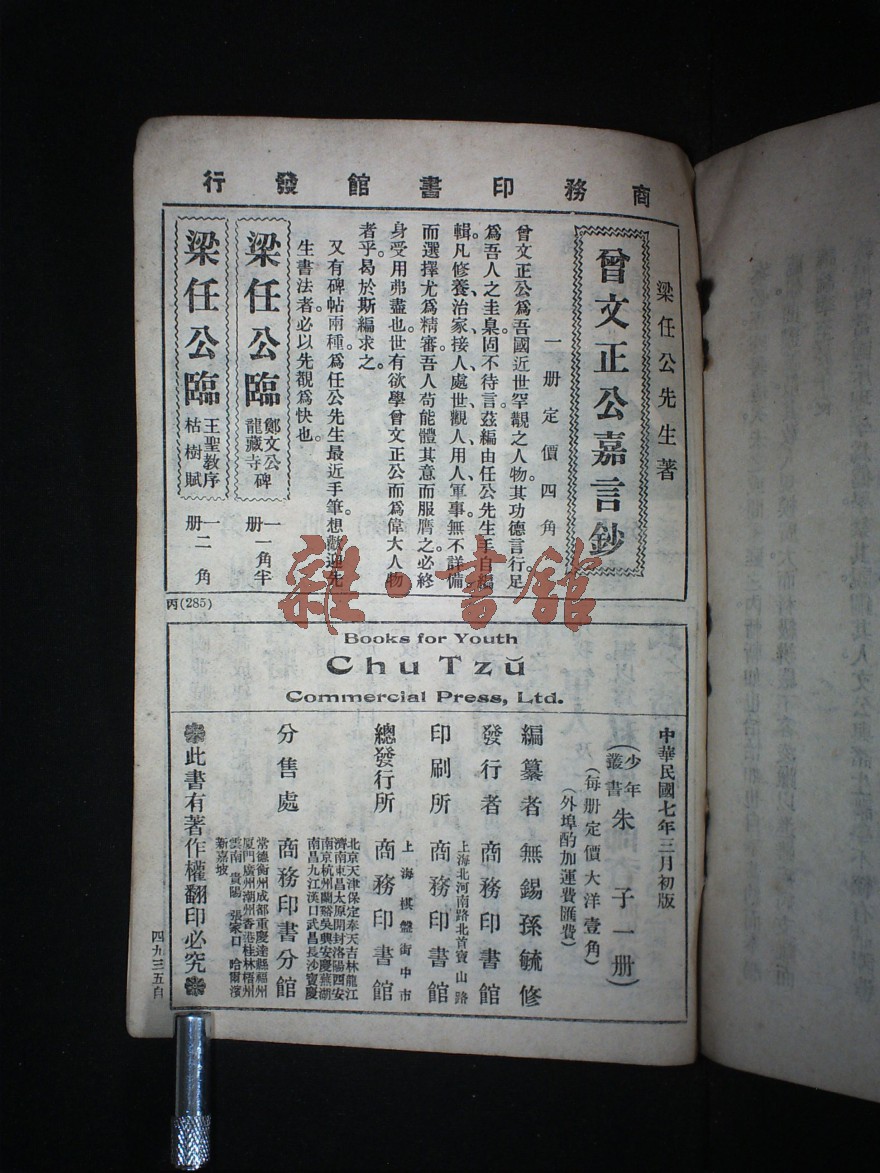 商務印書館發行
梁任公先生著
曾文正公嘉言鈔
一册定價四角
曾文正公爲吾國近世罕覯之人物其功德言行足
爲吾人之圭臬固不待言。茲編由任公先生手自編
輯凡修養、治家、接人、處世、觀人、用人、軍事。無不詳備。
而選擇尤爲精審吾人苟能體其意而服膺之。必終
身受用弗盡也。世有欲學曾文正公而爲偉大人物
者乎。曷於斯編求之。
又有碑帖兩種。爲任公先生最近手筆。想歡迎先
生書法者。必以先覩爲快也。
梁任公臨
鄭文公碑
龍藏寺
一册
一角半
梁任公臨
王聖教序
枯樹賦
一册
二角
丙(285)
雜·書館
Books for Youth
Chu Tzŭ
Commercial Press, Ltd.
中華民國七年三月初版
(少年叢書朱子一册)
(每册定價大洋壹角)
(外埠酌加運費匯費)
編纂者 無錫孫毓修
發行者 商務印書館
上海北河南路北首寶山路
印刷所 商務印書館
上海棋盤街中市
總發行所 商務印書館
北京天津保定奉天吉林龍江
濟南東昌太原開封洛陽西安
南京杭州蘭谿吳興安慶蕪湖
南昌九江漢口武昌長沙寶慶
分售處 商務印書分館
常德衡州成都重慶達縣福州
廈門廣州潮州香港桂林梧州
雲南 貴陽 張家口 哈爾濱
新嘉坡
此書有著作權翻印必究
四九三五自